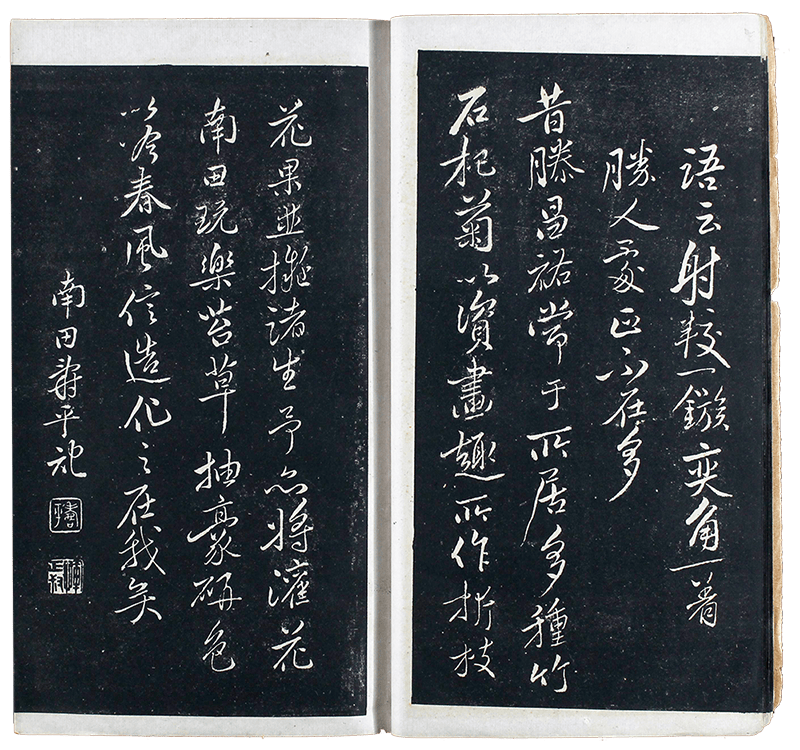 語云射較一鏃奕角一着
勝人處正不在多
昔滕昌祐常于所居多種竹
石杞菊以資畫趣所作折枝
花果並擬諸生予亦將灌花
南田玩樂苔草抽豪研色
以吟春風信造化之在我矣
南田壽平記